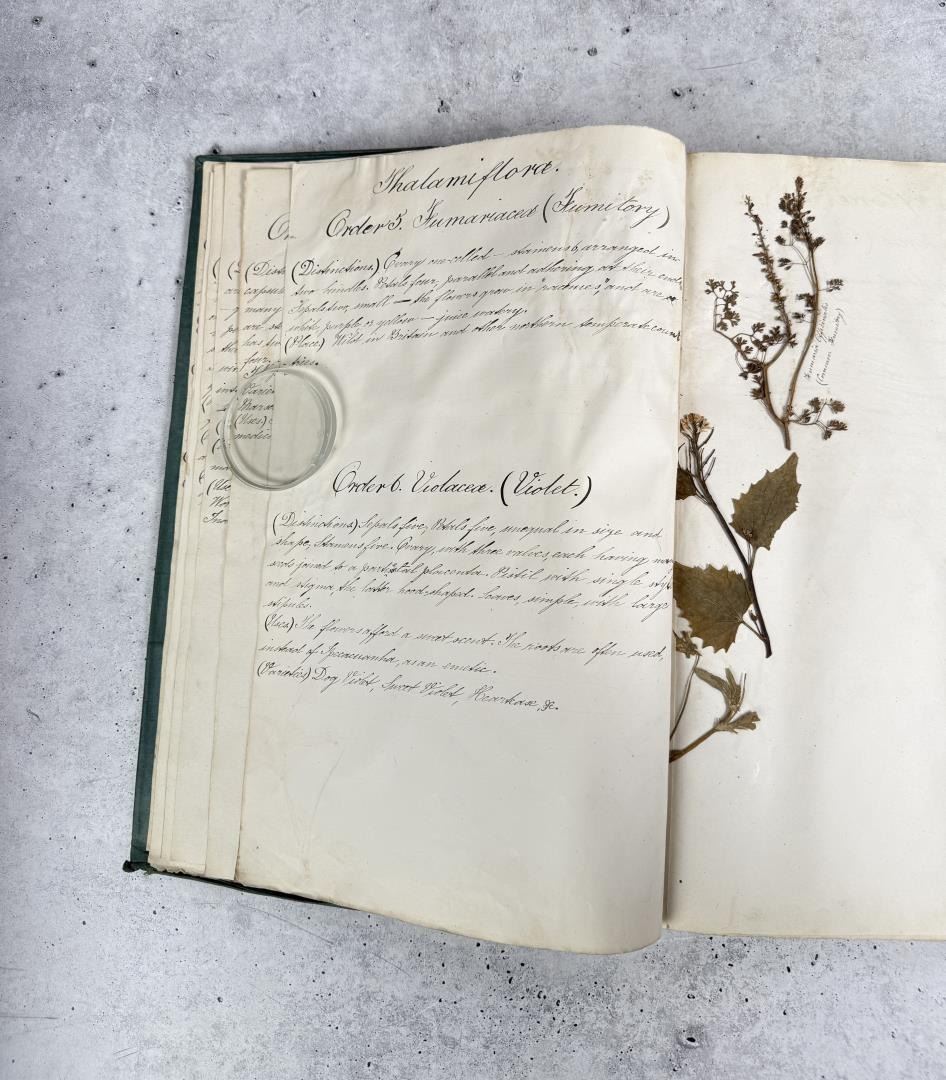 Thalamifloræ.
Order 5. Fumariaceæ (Fumitory)
(Distinctions.) Ovary one-celled — stamens 6, arranged in
two bundles. Petals four, parallel and adhering at their ends,
Sepals two, small — the flowers grow in "racemes," and are
white, purple or yellow — juice watery.
(Place.) Wild in Britain and other northern temperate
Order 6. Violaceæ. (Violet.)
(Distinctions) Sepals five, Petals five, unequal in size and
shape, Stamens five. Ovary, with three valves, each having
seeds joined to a placenta. Pistil with single
and stigma, the latter hood-shaped. Leaves, simple, with large
stipules.
(Uses) The flowers afford a sweet scent. The roots are often used,
instead of Ipecacuanha, as an emetic.
(Varieties) Dog Violet, Sweet Violet, Heartease, &c.
Fumaria Officinalis
(Common Fumitory)